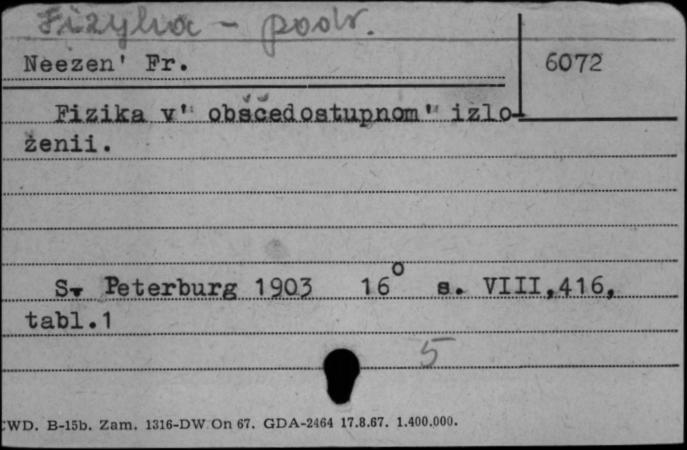 Fizyka - podr.
Neezen' Fr.
6072
Fizika v" obščedostupnom" izlo-
ženii.
S. Peterburg 1903 16° s. VIII,416,
tabl.1
5
WD. B-15b. Zam. 1316-DW On 67. GDA-2464 17.8.67. 1.400.000.